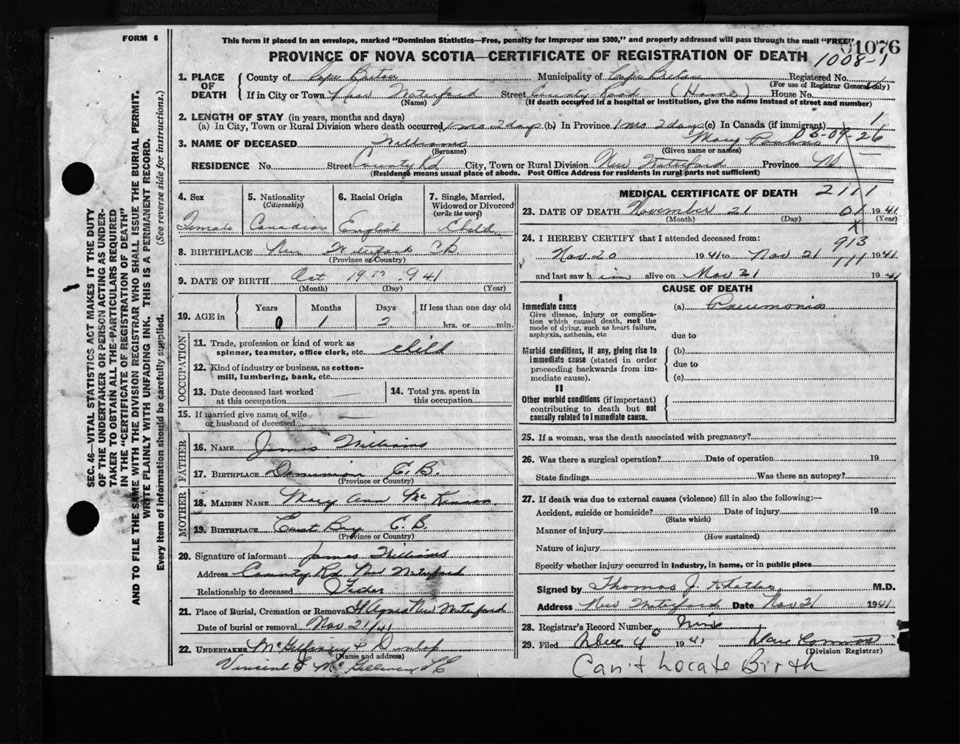 FORM 6
This form if placed in an envelope, marked "Dominion Statistics—Free, penalty for improper use $300," and properly addressed will pass through the mail "FREE"
01076
PROVINCE OF NOVA SCOTIA—CERTIFICATE OF REGISTRATION OF DEATH
1008-1
1. PLACE OF DEATH
County of Cape Breton Municipality of Cape Breton Registered No.
(For use of Registrar General only)
If in City or Town New Waterford Street County Road (Home) House No.
(Name) (If death occurred in a hospital or institution, give the name instead of street and number)
2. LENGTH OF STAY (in years, months and days)
(a) In City, Town or Rural Division where death occurred 1 mo 2 days (b) In Province 1 mo 2 days (c) In Canada (if immigrant)
1
05-09-26
3. NAME OF DECEASED Williams Mary
(Surname) (Given name or names)
RESIDENCE No. Street County Rd City, Town or Rural Division New Waterford Province NS
(Residence means usual place of abode. Post Office Address for residents in rural parts not sufficient)
4. Sex
Female
5. Nationality
(Citizenship)
Canadian
6. Racial Origin
English
7. Single, Married, Widowed or Divorced
(write the word)
Child
8. BIRTHPLACE New Waterford CB
(Province or Country)
9. DATE OF BIRTH Oct 19th 941
(Month) (Day) (Year)
10. AGE in
Years Months Days If less than one day old
0 1 2 hrs. or min.
OCCUPATION
11. Trade, profession or kind of work as spinner, teamster, office clerk, etc. child
12. Kind of industry or business, as cotton-mill, lumbering, bank, etc.
13. Date deceased last worked at this occupation
14. Total yrs. spent in this occupation
15. If married give name of wife or husband of deceased
FATHER
16. NAME James Williams
17. BIRTHPLACE Dominion C.B.
(Province or Country)
MOTHER
18. MAIDEN NAME Mary Ann McKinnon
19. BIRTHPLACE East Bay C B
(Province or Country)
20. Signature of informant James Williams
Address County Rd New Waterford
Relationship to deceased Father
21. Place of Burial, Cremation or Removal St Agnes New Waterford
Date of burial or removal Nov 21/41
22. UNDERTAKER Dunlop
(Name and address)
Vincent
MEDICAL CERTIFICATE OF DEATH
2111
23. DATE OF DEATH November 21 01 1941
(Month) (Day) (Year)
24. I HEREBY CERTIFY that I attended deceased from:
913
Nov 20 1941 to Nov 21 1941
111
and last saw h im alive on Nov 21 1941
CAUSE OF DEATH
I
Immediate cause
Give disease, injury or complication which caused death, not the mode of dying, such as heart failure, asphyxia, asthenia, etc
(a) Pneumonia
due to
Morbid conditions, if any, giving rise to immediate cause (stated in order proceeding backwards from immediate cause).
(b)
due to
(c)
II
Other morbid conditions (if important) contributing to death but not causally related to immediate cause.
25. If a woman, was the death associated with pregnancy?
26. Was there a surgical operation? Date of operation 19
State findings Was there an autopsy?
27. If death was due to external causes (violence) fill in also the following:—
Accident, suicide or homicide? Date of injury 19
(State which)
Manner of injury
(How sustained)
Nature of injury
Specify whether injury occurred in industry, in home, or in public place
Signed by Thomas J. M.D.
Address New Waterford Date Nov 21 1941
28. Registrar's Record Number Nine
29. Filed Dec 4 1941 Dan
(Division Registrar)
Can't Locate Birth
SEC. 46—VITAL STATISTICS ACT MAKES IT THE DUTY
OF THE UNDERTAKER OR PERSON ACTING AS UNDERTAKER TO OBTAIN ALL THE PARTICULARS REQUIRED
IN THE "CERTIFICATE OF REGISTRATION OF DEATH"
AND TO FILE THE SAME WITH THE DIVISION REGISTRAR WHO SHALL ISSUE THE BURIAL PERMIT.
WRITE PLAINLY WITH UNFADING INK. THIS IS A PERMANENT RECORD.
Every item of information should be carefully supplied. (See reverse side for instructions.)